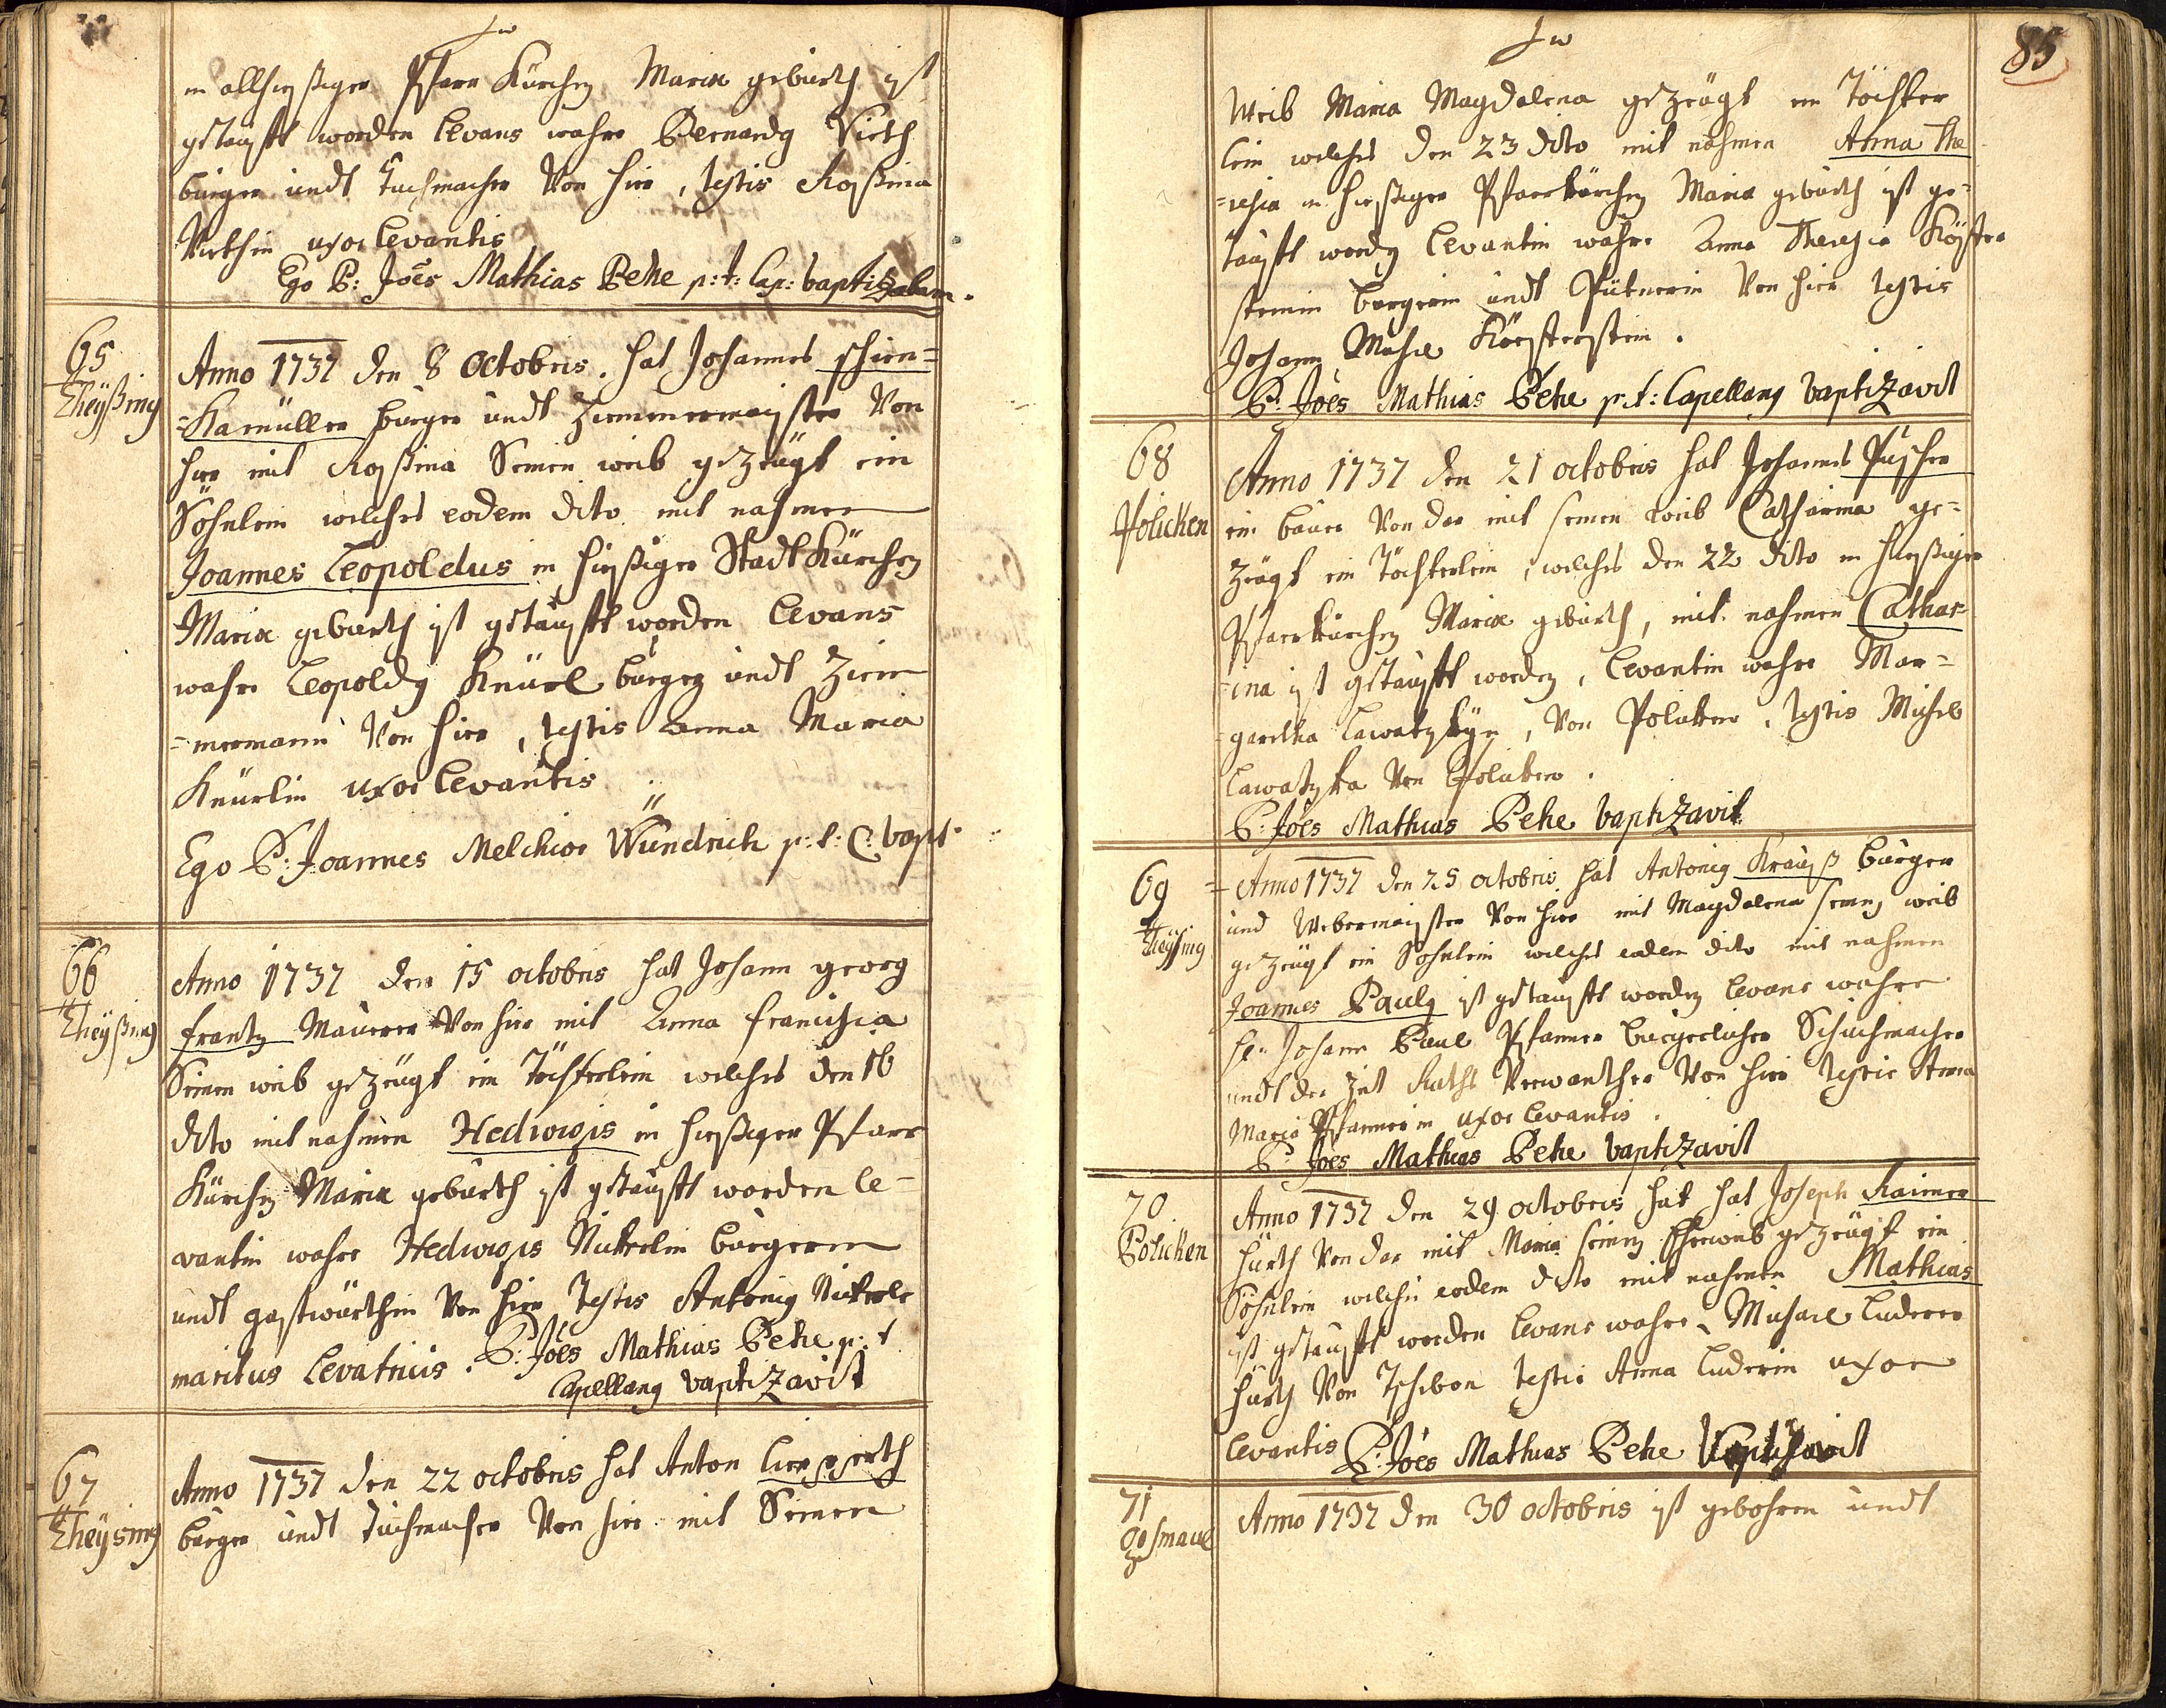 in allhießiger Pfarr Kürchen Mariæ geburth ist
getaufft worden Levans wahre Bernardg Vieth
burger undt Tuchmacher Von hier, testis Roßina
Viethin uxor Levantis
Ego P: Joēs Mathias Pehe p:t: Cap: baptizabam.
65
Theyßing
Anno 1737 den 8 Octobris. hat Johannes schien=
=Kamüller burger undt Zimmermeister Von
hier mit Roßina Seinen weib gezeügt ein
Söhnlein welches eodem dito mit nahmen
Joannes Leopoldus in hießiger Stadt Kürchen
Mariæ geburth ist getaufft worden Levans
wahre Leopoldg Knürl burger undt Zim
=mermann Von hier, testis Anna Maria
Knürlin uxor Levantis
Ego P: Joannes Melchior Wündrich p:t: C: bapt.
66
Theyßing
Anno 1737 den 15 octobris hat Johann georg
frantz Maurer Von hier mit Anna francisca
Seinen weib gezeügt ein Töchterlein welches den 16
dito mit nahmen Hedwigis in hießiger Pfarr
Kürchen Mariæ geburth ist getaufft worden le=
vantin wahre Hedwigis Nickerlin burgerin
undt gastwürthin Von hier testis Antonig Nickerle
maritus Levatricis. P: Joēs Mathias Pehe p:t
Capellang baptizavit
67
Theysing
Anno 1737 den 22 octobris hat Anton
burger undt Tuchmacher Von hier mit Seinen
85
Weib Maria Magdalena gezeügt ein Töchter
lein welches den 23 dito mit nahmen Anna The
=resia in hießiger Pfarrkürchen Mariæ geburth ist ge=
taufft worden Levantin wahre Anna Theresia
burgerin undt Pütnerin Von hier testis
Johann
P: Joēs Mathias Pehe p:t: Capellang baptizavit
68
Policken
Anno 1737 den 21 octobris hat Johannes Puscher
ein bauer Von dar mit seinen weib Catharina ge=
zeügt ein Töchterlein, welches den 22 dito in hießiger
Pfarrkürchen Mariæ geburth, mit nahmen Cathar=
=ina ist getaufft worden, Levantin wahre Mar=
=garetha Lawatzkyn, Von Polaken, testis Michel
Lawatzka Von Polaken.
P: Joēs Mathias Pehe baptizavit
69
Theysing
Anno 1737 den 25 octobris hat Antonig Krauß burger
und Webermeister Von hier mit Magdalena seinen weib
gezeügt ein Söhnlein welches eodem dito mit nahmen
Joannes Paulg ist getaufft worden Levans wahre
H: Johann Paul Pfanner burgerlicher Schuchmacher
undt der Zeit Raths Verwanther Von hier testis Anna
Maria Pfannerin uxor Levantis.
P: Joēs Mathias Pehe baptizavit
70
Policken
Anno 1737 den 29 octobris hat hat Joseph Raimer
hürth Von dar mit Maria seinen Eheweib gezeügt ein
Söhnlein welches eodem dito mit nahmen Mathias
ist getaufft worden Levans wahre Michael Luderer
hürth Von Tschebon testis Anna Luderin uxor
Levantis P: Joēs Mathias Pehe baptizavit
71
Anno 1737 den 30 octobris ist gebohren undt